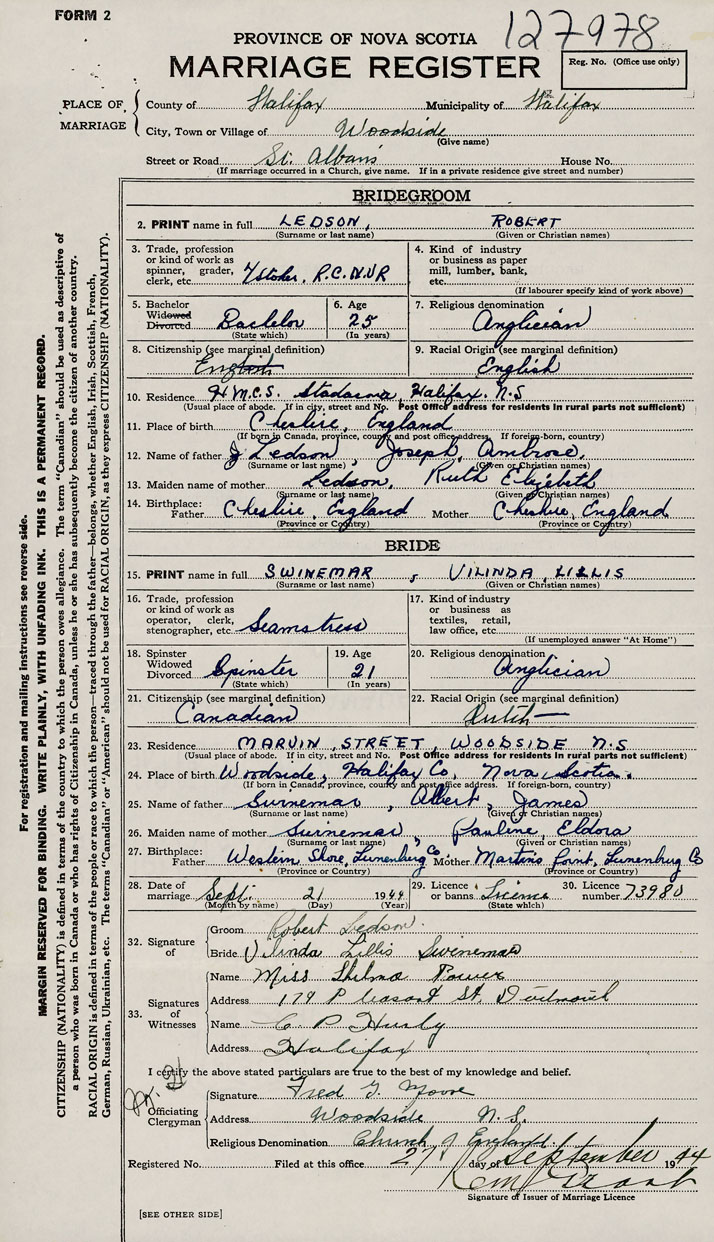 FORM 2
127978
PROVINCE OF NOVA SCOTIA
MARRIAGE REGISTER
Reg. No. (Office use only)
PLACE OF MARRIAGE
County of Halifax Municipality of Halifax
City, Town or Village of Woodside
(Give name)
Street or Road St. Albans House No.
(If marriage occurred in a Church, give name. If in a private residence give street and number)
BRIDEGROOM
2. PRINT name in full LEDSON, ROBERT
(Surname or last name) (Given or Christian names)
3. Trade, profession or kind of work as spinner, grader, clerk, etc. Stoker, R.C.N.V.R
4. Kind of industry or business as paper mill, lumber, bank, etc.
(If labourer specify kind of work above)
5. Bachelor Widowed Divorced Bachelor
(State which)
6. Age 25
(In years)
7. Religious denomination Anglician
8. Citizenship (see marginal definition) English
9. Racial Origin (see marginal definition) English
10. Residence H.M.C.S. Stadacona, Halifax. N.S
(Usual place of abode. If in city, street and No. Post Office address for residents in rural parts not sufficient)
11. Place of birth Cheshire, England
(If born in Canada, province, county and post office address. If foreign-born, country)
12. Name of father J Ledson, Joseph, Ambrose.
(Surname or last name) (Given or Christian names)
13. Maiden name of mother Ledson, Ruth Elizebeth
(Surname or last name) (Given or Christian names)
14. Birthplace: Father Cheshire, England Mother Cheshire, England
(Province or Country) (Province or Country)
BRIDE
15. PRINT name in full SWINEMAR, VILINDA, LILLIS
(Surname or last name) (Given or Christian names)
16. Trade, profession or kind of work as operator, clerk, stenographer, etc. Seamstress
17. Kind of industry or business as textiles, retail, law office, etc.
(If unemployed answer "At Home")
18. Spinster Widowed Divorced Spinster
(State which)
19. Age 21
(In years)
20. Religious denomination Anglician
21. Citizenship (see marginal definition) Canadian
22. Racial Origin (see marginal definition) Dutch
23. Residence MARVIN, STREET, WOODSIDE N.S
(Usual place of abode. If in city, street and No. Post Office address for residents in rural parts not sufficient)
24. Place of birth Woodside, Halifax Co, Nova Scotia.
(If born in Canada, province, county and post office address. If foreign-born, country)
25. Name of father Surnemar, Albert, James
(Surname or last name) (Given or Christian names)
26. Maiden name of mother Surnemar, Pauline, Eldora
(Surname or last name) (Given or Christian names)
27. Birthplace: Father Western Shore, Lunenburg Co Mother Martins Point, Lunenburg Co
(Province or Country) (Province or Country)
28. Date of marriage Sept. 21 1944
(Month by name) (Day) (Year)
29. Licence or banns Licence
(State which)
30. Licence number 73980
32. Signature of
Groom Robert Ledson
Bride Vilinda Lillis Swinemar
33. Signatures of Witnesses
Name Miss Thelma Power
Address 179 Pleasant St. Dartmouth
Name C. P. Hurly
Address Halifax
I certify the above stated particulars are true to the best of my knowledge and belief.
34. Officiating Clergyman
Signature Fred G. Moore
Address Woodside N.S.
Religious Denomination Church of England
Registered No. Filed at this office 27 day of September 1944
Signature of Issuer of Marriage Licence
[SEE OTHER SIDE]
For registration and mailing instructions see reverse side.
MARGIN RESERVED FOR BINDING. WRITE PLAINLY, WITH UNFADING INK. THIS IS A PERMANENT RECORD.
CITIZENSHIP (NATIONALITY) is defined in terms of the country to which the person owes allegiance. The term "Canadian" should be used as descriptive of
a person who was born in Canada or who has rights of Citizenship in Canada, unless he or she has subsequently become the citizen of another country.
RACIAL ORIGIN is defined in terms of the people or race to which the person—traced through the father—belongs, whether English, Irish, Scottish, French,
German, Russian, Ukrainian, etc. The terms "Canadian" or "American" should not be used for RACIAL ORIGIN, as they express CITIZENSHIP (NATIONALITY).